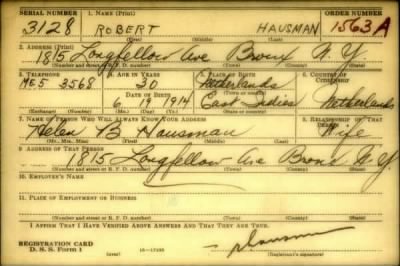 SERIAL NUMBER 1. NAME (Print) ORDER NUMBER
3128 ROBERT HAUSMAN 1563A
(First) (Middle) (Last)
2. ADDRESS (Print)
1815 Longfellow Ave Bronx N.Y.
(Number and street or R. F. D. number) (Town) (County) (State)
3. TELEPHONE 4. AGE IN YEARS 5. PLACE OF BIRTH 6. COUNTRY OF CITIZENSHIP
ME5 3568 30 Netherlands
DATE OF BIRTH
6 19 1914 East Indies Netherlands
(Exchange) (Number) (Mo.) (Day) (Yr.) (State or country)
7. NAME OF PERSON WHO WILL ALWAYS KNOW YOUR ADDRESS 8. RELATIONSHIP OF THAT PERSON
Helen B Hausman Wife
(Mr., Mrs., Miss) (First) (Middle) (Last)
9. ADDRESS OF THAT PERSON
1815 Longfellow Ave Bronx N.Y.
(Number and street or R. F. D. number) (Town) (County) (State)
10. EMPLOYER'S NAME
11. PLACE OF EMPLOYMENT OR BUSINESS
(Number and street or R. F. D. number) (Town) (County) (State)
I AFFIRM THAT I HAVE VERIFIED ABOVE ANSWERS AND THAT THEY ARE TRUE.
REGISTRATION CARD
D. S. S. Form 1 (Registrant's signature)